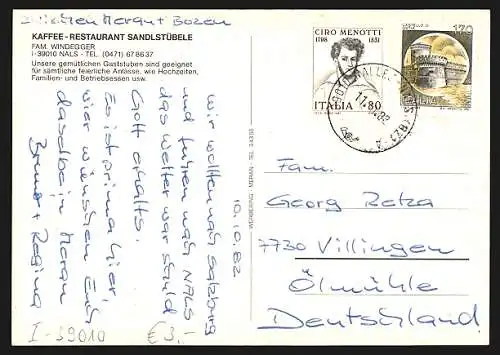 zwischen Meran + Bozen
KAFFEE-RESTAURANT SANDLSTÜBELE
FAM. WINDEGGER
I-39010 NALS - TEL. (0471) 678637
Unsere gemütlichen Gaststuben sind geeignet
für sämtliche feierliche Anlässe, wie Hochzeiten,
Familien- und Betriebsessen usw.
10.10.82
wir wollten nach Salzburg
und fuhren nach NALS
das Wetter war schuld
Gott erhalts.
Es ist prima hier,
wir wünschen Euch
dasselbe in Meran
Bruno + Regina
I-39010 € 3,-
WERBERING - MERAN - TEL.
CIRO MENOTTI
1798 1831
ITALIA 80
170
11.10.82
Fam.
Georg Retza
7730 Villingen
Ölmühle
Deutschland.